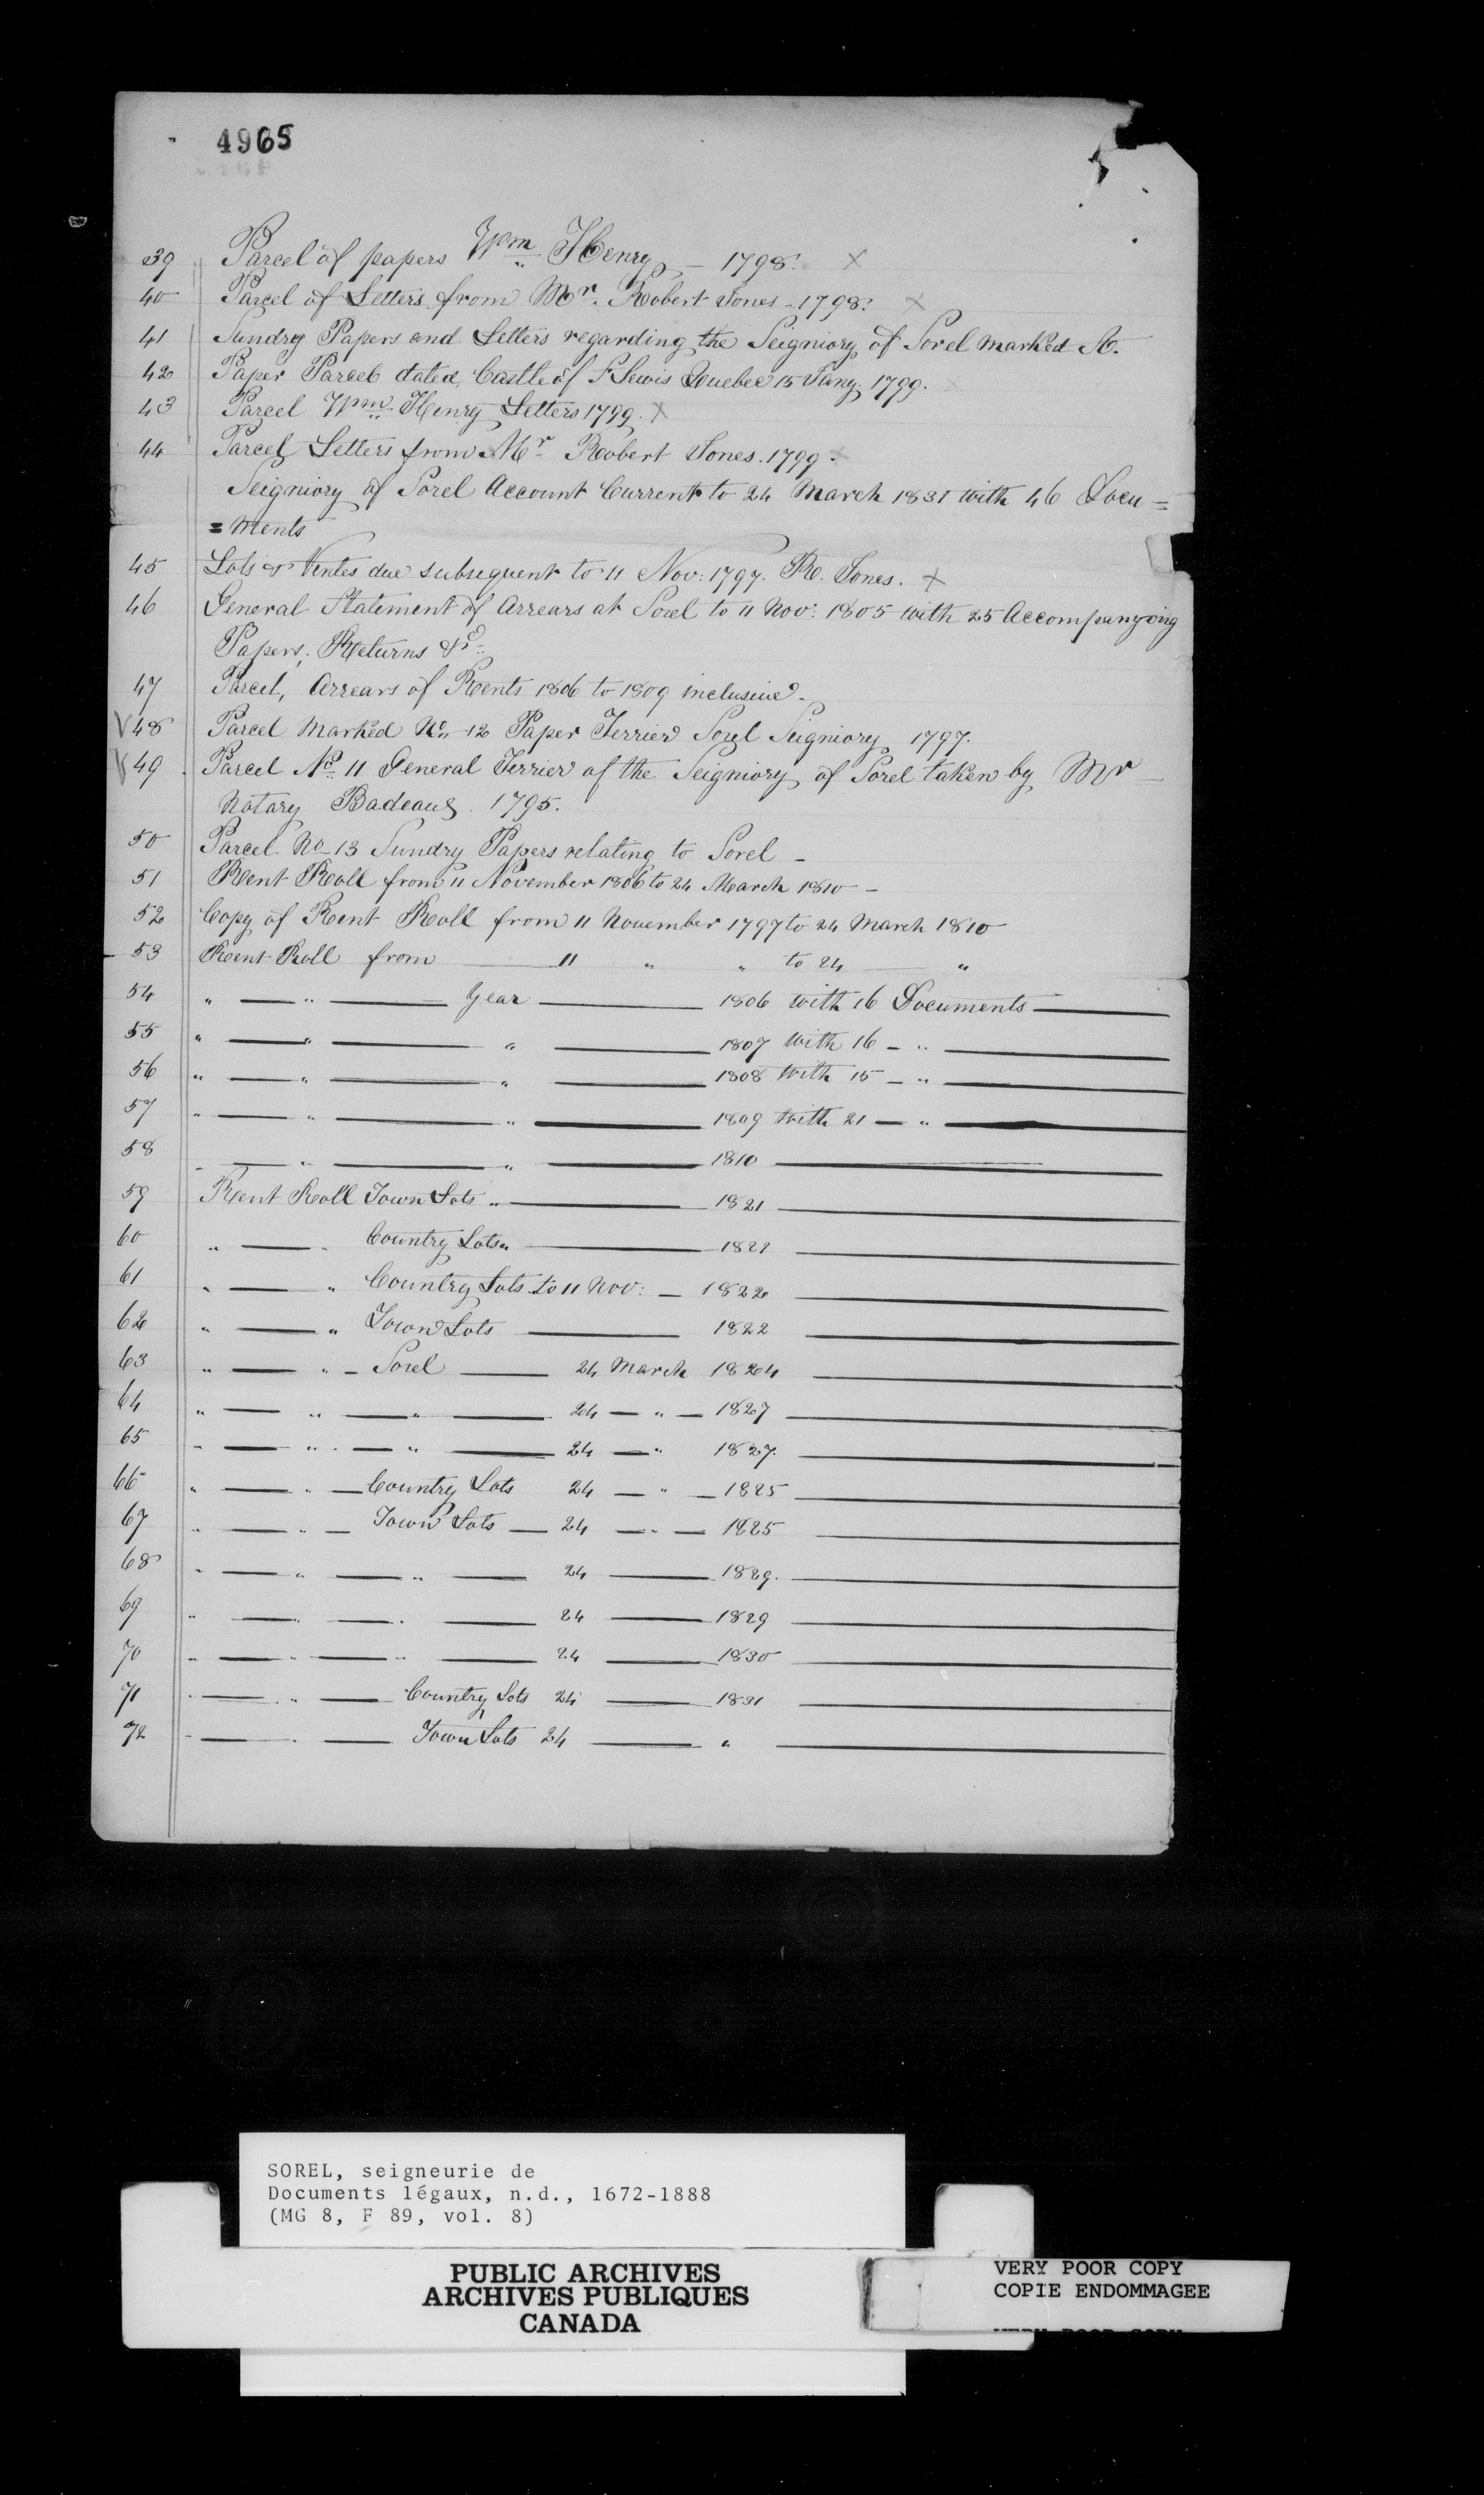 4965
39 Parcel of papers Wm Henry - 1798. X
40 Parcel of Letters from Mr. Robert Jones - 1798. X
41 Sundry Papers and Letters regarding the Seigniory of Sorel marked A.
42 Paper Parcel dated Castle of S Lewis Quebec 15 Jany. 1799. X
43 Parcel Wm Henry Letters 1799. X
44 Parcel Letters from Mr Robert Jones. 1799. X
Seigniory of Sorel Account Current to 24 March 1831 with 46 Docu=
=ments
45 Lots & Ventes due subsequent to 11 Nov: 1797. R. Jones. X
46 General Statement of Arrears at Sorel to 11 Nov: 1805 with 25 Accompanying
Papers, Returns &c
47 Parcel, Arrears of Rents 1806 to 1809 inclusive.
√ 48 Parcel Marked No. 12 Paper Terrier Sorel Seigniory 1797.
√ 49 Parcel No. 11 General Terrier of the Seigniory of Sorel taken by Mr
Notary Badeaux. 1795.
50 Parcel No 13 Sundry Papers relating to Sorel -
51 Rent Roll from 11 November 1806 to 24 March 1810 -
52 Copy of Rent Roll from 11 November 1797 to 24 March 1810
53 Rent Roll from — 11 " " to 24 — "
54 " — " — Year — 1806 with 16 Documents —
55 " — " — " — 1807 with 16 - " —
56 " — " — " — 1808 with 15 - " —
57 " — " — " — 1809 with 21 — " —
58 " — " — " — 1810 —
59 Rent Roll Town Lots " — 1821 —
60 " — " Country Lots " — 1821 —
61 " — " Country Lots to 11 Nov: — 1822 —
62 " — " Town Lots — 1822 —
63 " — " - Sorel — 24 March 1824 —
64 " — " — " — 24 — " — 1827 —
65 " — " — " — 24 — " 1827. —
66 " — " — Country Lots 24 — " — 1825 —
67 " — " — Town Lots — 24 — " — 1825 —
68 " — " — " — 24 — 1829. —
69 " — " — " — 24 — 1829 —
70 " — " — " — 24 — 1830 —
71 " — " — Country Lots 24 — 1831 —
72 " — " — Town Lots 24 — " —
SOREL, seigneurie de
Documents légaux, n.d., 1672-1888
(MG 8, F 89, vol. 8)
PUBLIC ARCHIVES
ARCHIVES PUBLIQUES
CANADA
VERY POOR COPY
COPIE ENDOMMAGEE
VERY POOR COPY